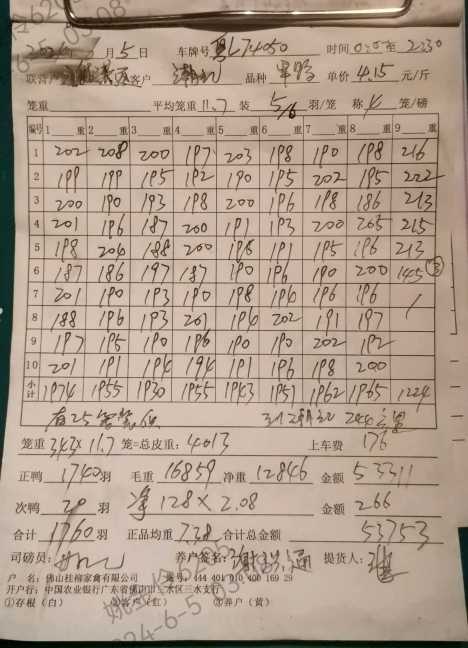 月5日 车牌号 粤L74050 时间
客户 品种 单价 4.15 元/斤
笼重 平均笼重 11.7 装 5/6 羽/笼 称 4 笼/磅
编号 1 重 2 重 3 重 4 重 5 重 6 重 7 重 8 重 9 重
1 202 208 200 197 203 198 190 198 216
2 199 199 195 192 190 195 202 195 222
3 200 190 193 198 200 196 198 186 213
4 201 196 187 200 191 193 200 205 215
5 198 204 188 200 198 191 195 196 213
6 187 186 197 187 190 196 190 200 145
7 201 190 193 190 198 196 196 196
8 188 196 193 201 194 202 191 197
9 197 195 190 196 190 190 202 192
10 201 191 194 194 191 196 198 200
小计 1974 1955 1930 1955 1943 1951 1962 1965 1224
笼重 343×11.7 笼=总皮重: 4013 上车费 176
正鸭 1740 羽 毛重 16859 净重 12846 金额 53311
次鸭 20 羽 净 128×2.08 金额 266
合计 1760 羽 正品均重 7.38 合计总金额 53753
司磅员: 养户签名: 提货人:
户 名: 佛山桂柳家禽有限公司 账号: 444 401 010 400 169 29
开户行: 中国农业银行广东省佛山市三水区三水支行
①存根(白) ②客户(红) ③养户(黄)